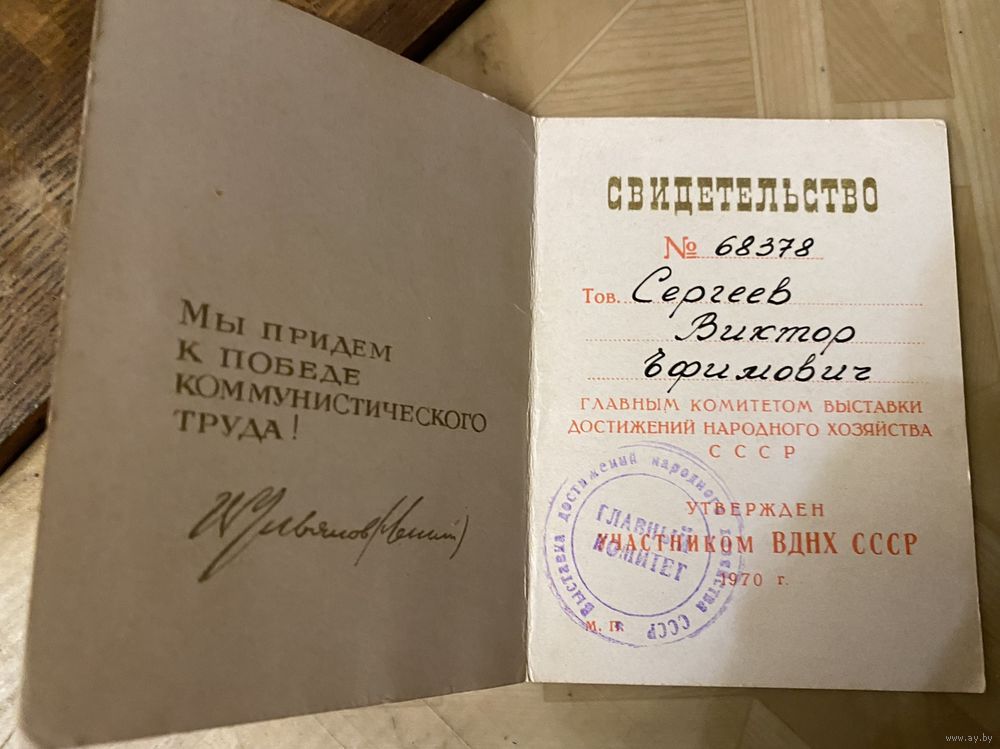 Мы придем
к победе
коммунистического
труда!
В Ульянов (Ленин)
СВИДЕТЕЛЬСТВО
№ 68378
Тов. Сергеев
Виктор
Ефимович
ГЛАВНЫМ КОМИТЕТОМ ВЫСТАВКИ
ДОСТИЖЕНИЙ НАРОДНОГО ХОЗЯЙСТВА
СССР
УТВЕРЖДЕН
УЧАСТНИКОМ ВДНХ СССР
1970 г.
М. П.
Выставка достижений народного хозяйства СССР
ГЛАВНЫЙ
КОМИТЕТ
www.ay.by